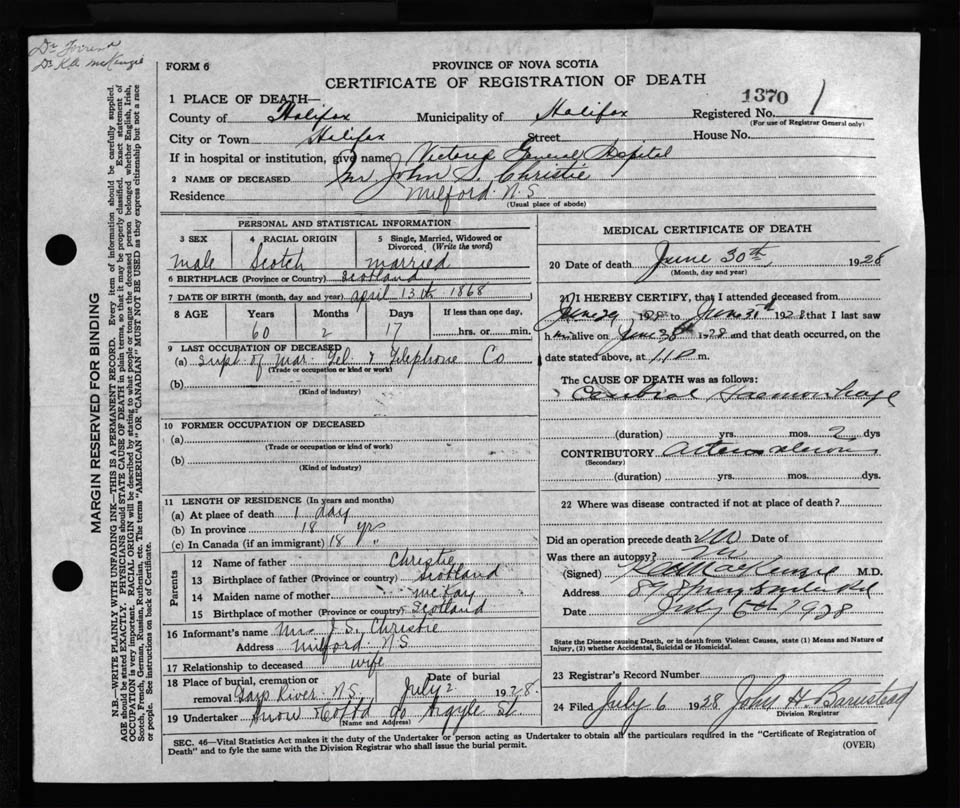 Dr K.A. McKenzie
FORM 6
PROVINCE OF NOVA SCOTIA
CERTIFICATE OF REGISTRATION OF DEATH
1 PLACE OF DEATH—
1370 1
County of Halifax Municipality of Halifax Registered No.
(For use of Registrar General only)
City or Town Halifax Street House No.
If in hospital or institution, give name Victoria General Hospital
2 NAME OF DECEASED Mr John S. Christie
Residence Milford N.S
(Usual place of abode)
PERSONAL AND STATISTICAL INFORMATION
3 SEX 4 RACIAL ORIGIN 5 Single, Married, Widowed or Divorced (Write the word)
male Scotch married
6 BIRTHPLACE (Province or Country) Scotland
7 DATE OF BIRTH (month, day and year) April 13th 1868
8 AGE Years Months Days If less than one day,
60 2 17 hrs. or min.
9 LAST OCCUPATION OF DECEASED
(a) Supt of Mar. Tel. & Telephone Co
(Trade or occupation or kind or work)
(b)
(Kind of industry)
10 FORMER OCCUPATION OF DECEASED
(a)
(Trade or occupation or kind of work)
(b)
(Kind of industry)
11 LENGTH OF RESIDENCE (In years and months)
(a) At place of death 1 day
(b) In province 18 yrs
(c) In Canada (if an immigrant) 18 "
Parents
12 Name of father Christie
13 Birthplace of father (Province or country) Scotland
14 Maiden name of mother McKay
15 Birthplace of mother (Province or country) Scotland
16 Informant's name Mrs J. S. Christie
Address Milford N.S
17 Relationship to deceased wife
18 Place of burial, cremation or removal Gays River N.S. Date of burial July 2 1928.
19 Undertaker Snow & Co Ltd 90 Argyle St.
(Name and Address)
MEDICAL CERTIFICATE OF DEATH
20 Date of death June 30th 1928
(Month, day and year)
21 I HEREBY CERTIFY, that I attended deceased from
June 29 1928 to June 31st 1928 that I last saw
h alive on June 1928 and that death occurred, on the
date stated above, at 11 P m.
The CAUSE OF DEATH was as follows:
Cerebral Haemorrhage
(duration) yrs. mos. 2 dys
CONTRIBUTORY
(Secondary)
(duration) yrs. mos. dys.
22 Where was disease contracted if not at place of death?
Did an operation precede death? No Date of
Was there an autopsy? No
(Signed) K A MacKenzie M.D.
Address
Date July 6th 1928
State the Disease causing Death, or in death from Violent Causes, state (1) Means and Nature of
Injury, (2) whether Accidental, Suicidal or Homicidal.
23 Registrar's Record Number
24 Filed July 6 1928 John H. Barnstead
Division Registrar
SEC. 46—Vital Statistics Act makes it the duty of the Undertaker or person acting as Undertaker to obtain all the particulars required in the "Certificate of Registration of
Death" and to fyle the same with the Division Registrar who shall issue the burial permit.
(OVER)
MARGIN RESERVED FOR BINDING
N.B.—WRITE PLAINLY WITH UNFADING INK—THIS IS A PERMANENT RECORD. Every item of information should be carefully supplied.
AGE should be stated EXACTLY. PHYSICIANS should STATE CAUSE OF DEATH in plain terms, so that it may be properly classified. Exact statement of
OCCUPATION is very important. RACIAL ORIGIN will be described by stating to what people or tongue the deceased person belonged whether English, Irish,
Scotch, French, German, Russian, Ruthenian, etc. The terms "AMERICAN" OR "CANADIAN" MUST NOT BE USED as they express citizenship but not a race
or people. See instructions on back of Certificate.